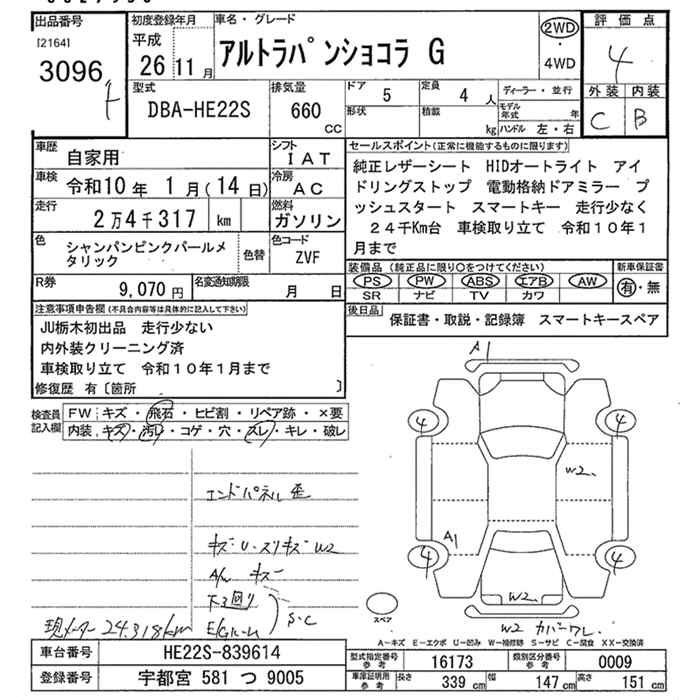 出品番号
[2164]
3096
初度登録年月
平成
26 11月
車名・グレード
アルトラパンショコラ G
2WD
・
4WD
評価点
4
外装 内装
C B
型式
DBA-HE22S
排気量
660
CC
ドア 5
定員 4 人
形状
積載 kg
ディーラー・並行
モデル年式 年
ハンドル 左・右
車歴
自家用
シフト
IAT
車検
令和10年 1月(14日)
冷房
AC
走行
2万4千317 km
燃料
ガソリン
色
シャンパンピンクパールメ
タリック
色替
色コード
ZVF
R券
9,070 円
名変通知期限
月 日
セールスポイント(正常に機能するものに限ります)
純正レザーシート HIDオートライト アイ
ドリングストップ 電動格納ドアミラー プ
ッシュスタート スマートキー 走行少なく
24千Km台 車検取り立て 令和10年1
月まで
装備品 (純正品に限り○をつけてください)
PS PW ABS エアB AW
SR ナビ TV カワ
新車保証書
有・無
後日品
保証書・取説・記録簿 スマートキースペア
注意事項申告欄(不具合内容等は具体的に記入して下さい)
JU栃木初出品 走行少ない
内外装クリーニング済
車検取り立て 令和10年1月まで
修復歴 有〔箇所 〕
検査員
記入欄
FW キズ・飛石・ヒビ割・リペア跡・×要
内装 キズ・汚レ・コゲ・穴・スレ・キレ・破レ
エンドパネル歪
キズU・スリキズW2
A/W キズ
下回り
E/Gルーム
S.C
現メーター 24.318km
A1
4
4
W2.
A1
4
4
W2.
W2 カバーワレ.
スペア
A-キズ E-エクボ U-凹み W-補修跡 S-サビ C-腐食 XX-交換済
車台番号
HE22S-839614
登録番号
宇都宮 581 つ 9005
型式指定番号
参考
16173
類別区分番号
参考
0009
車庫証明用
参考
長さ 339 cm
幅 147 cm
高さ 151 cm